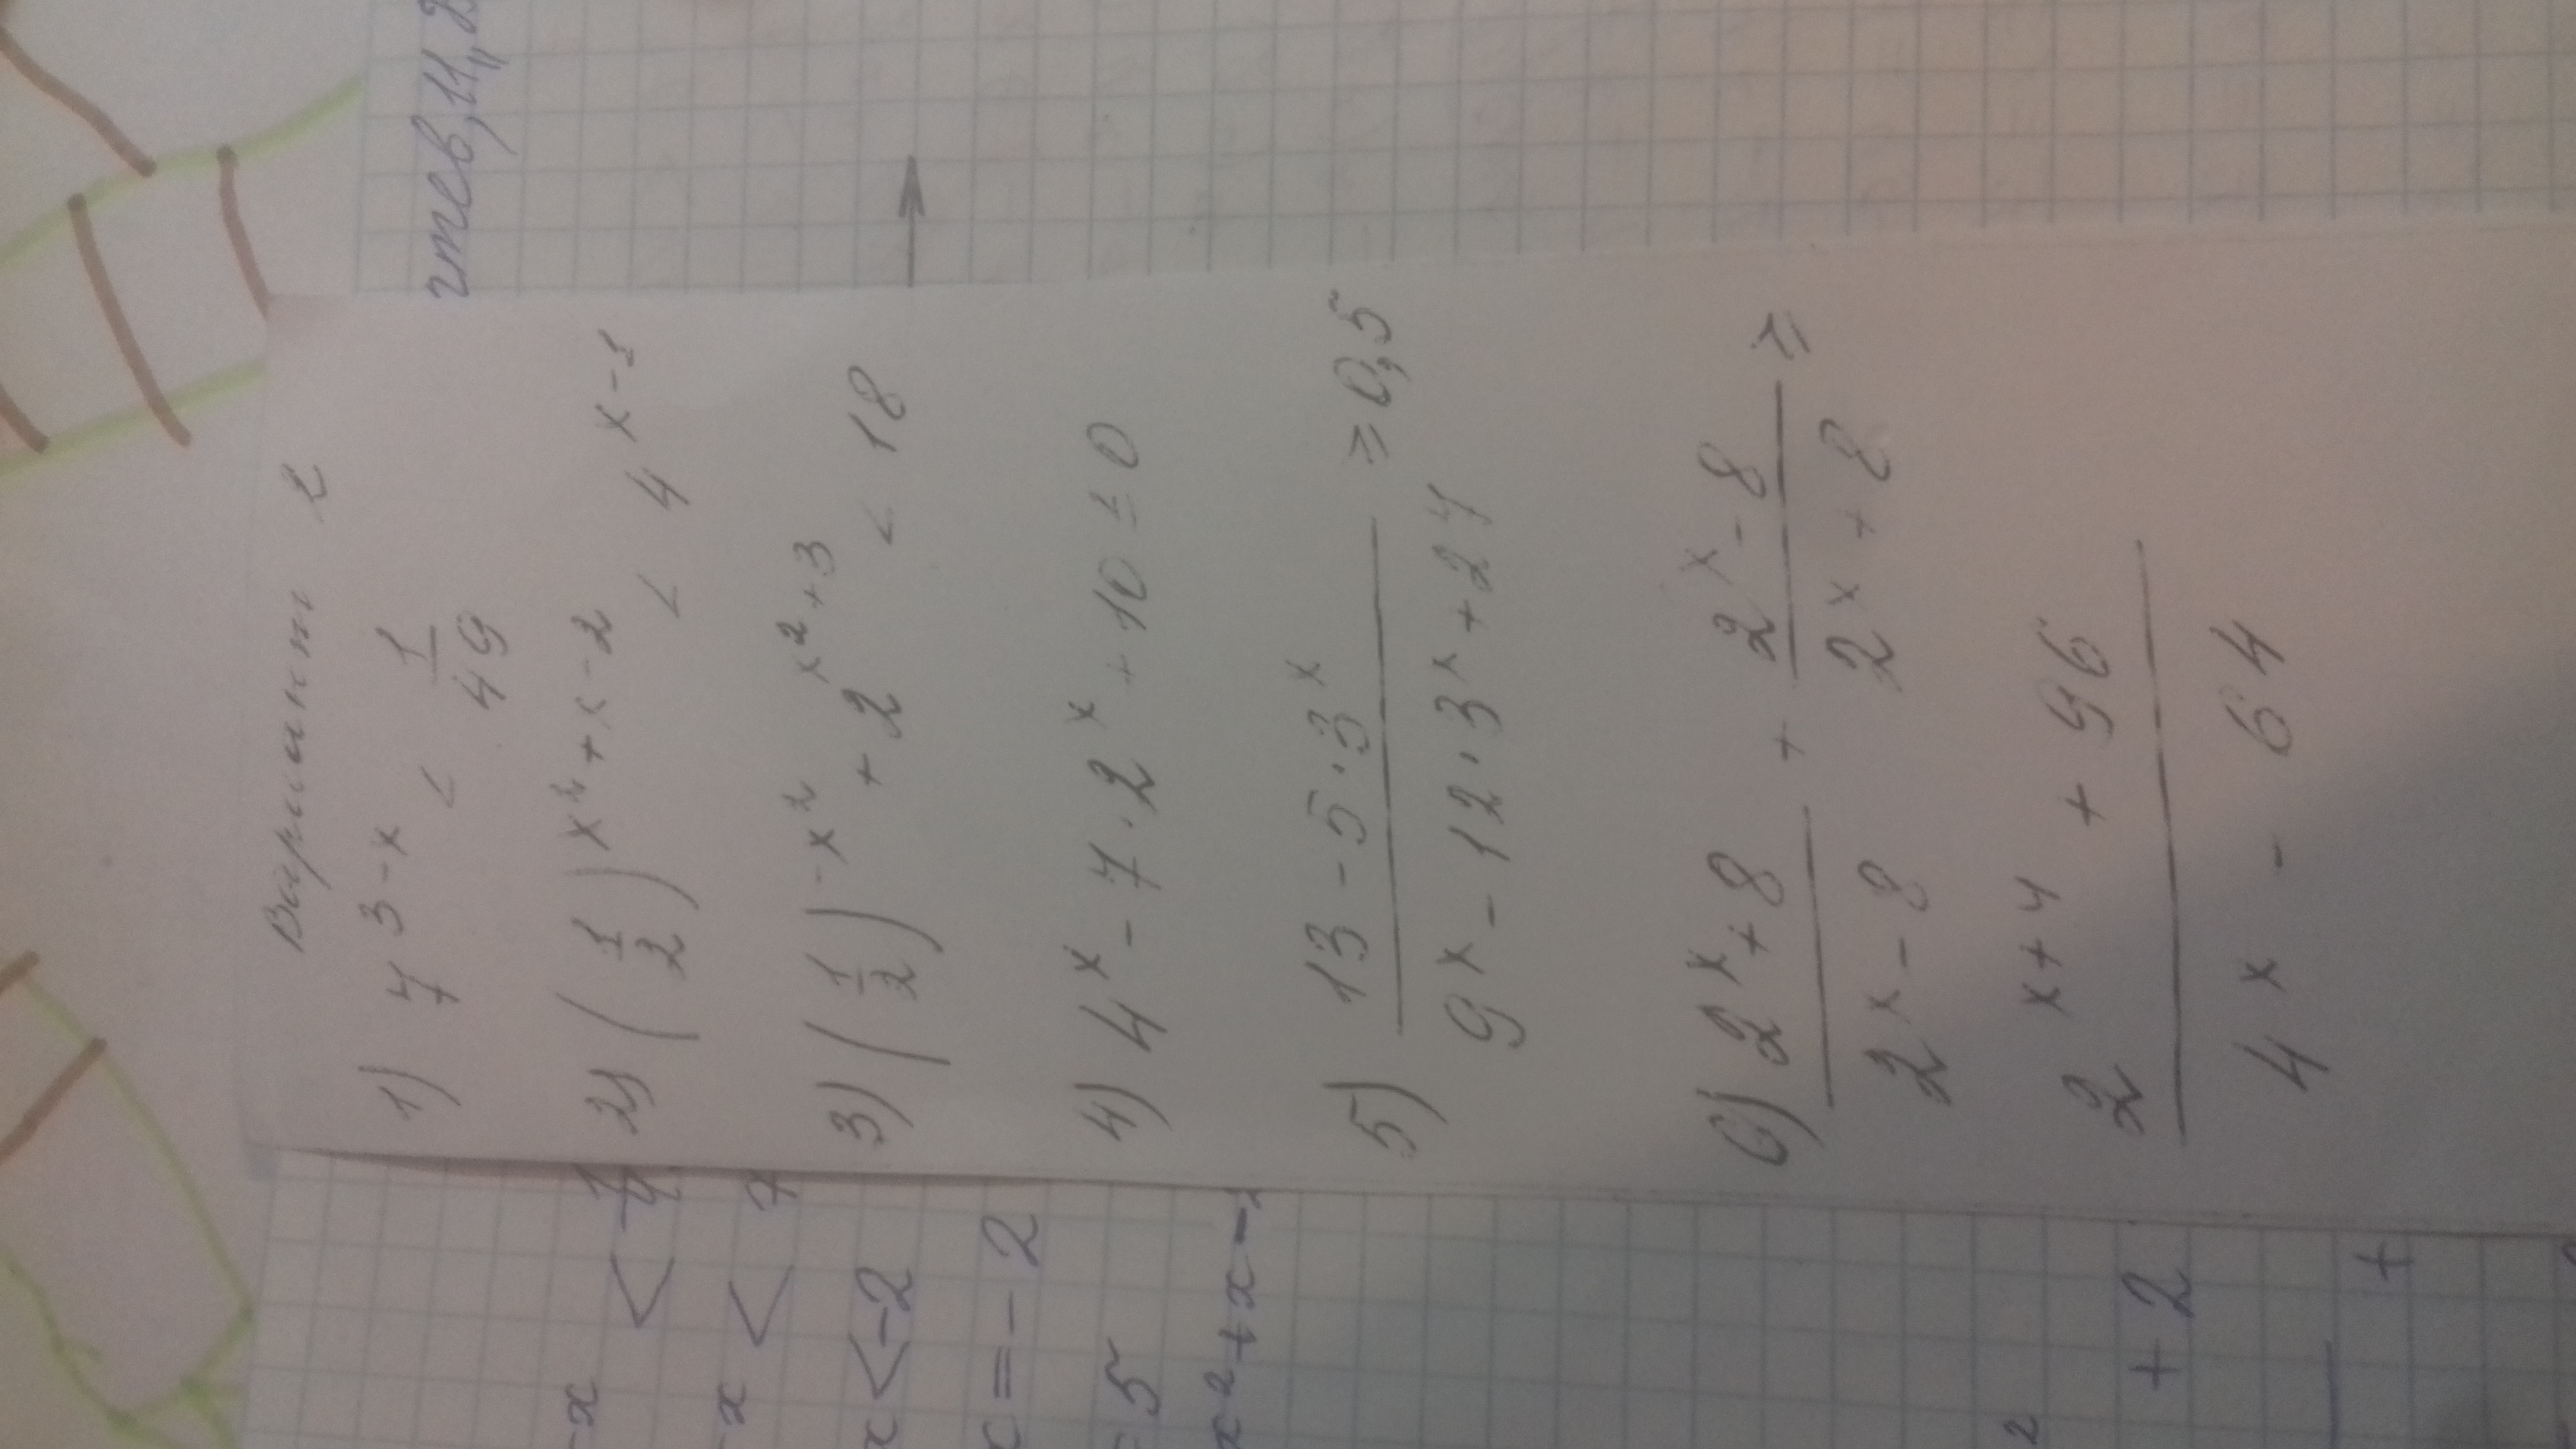 чтев, 11,,
Вариант 2
1) 7^(3-x) < 1/49
2) (1/2)^(x²+x-2) < 4^(x-1)
3) (1/2)^(-x²) + 2^(x²+3) < 18
4) 4^x - 7·2^x + 10 ≤ 0
5) (13 - 5·3^x)/(9^x - 12·3^x + 27) ≥ 0,5
6) (2^x+8)/(2^x-8) + (2^x-8)/(2^x+8) ≥
(2^(x+4) + 96)/(4^x - 64)
-x <
-x < 7
x < -2
x = -2
5
x²+x-
2
+ 2
+